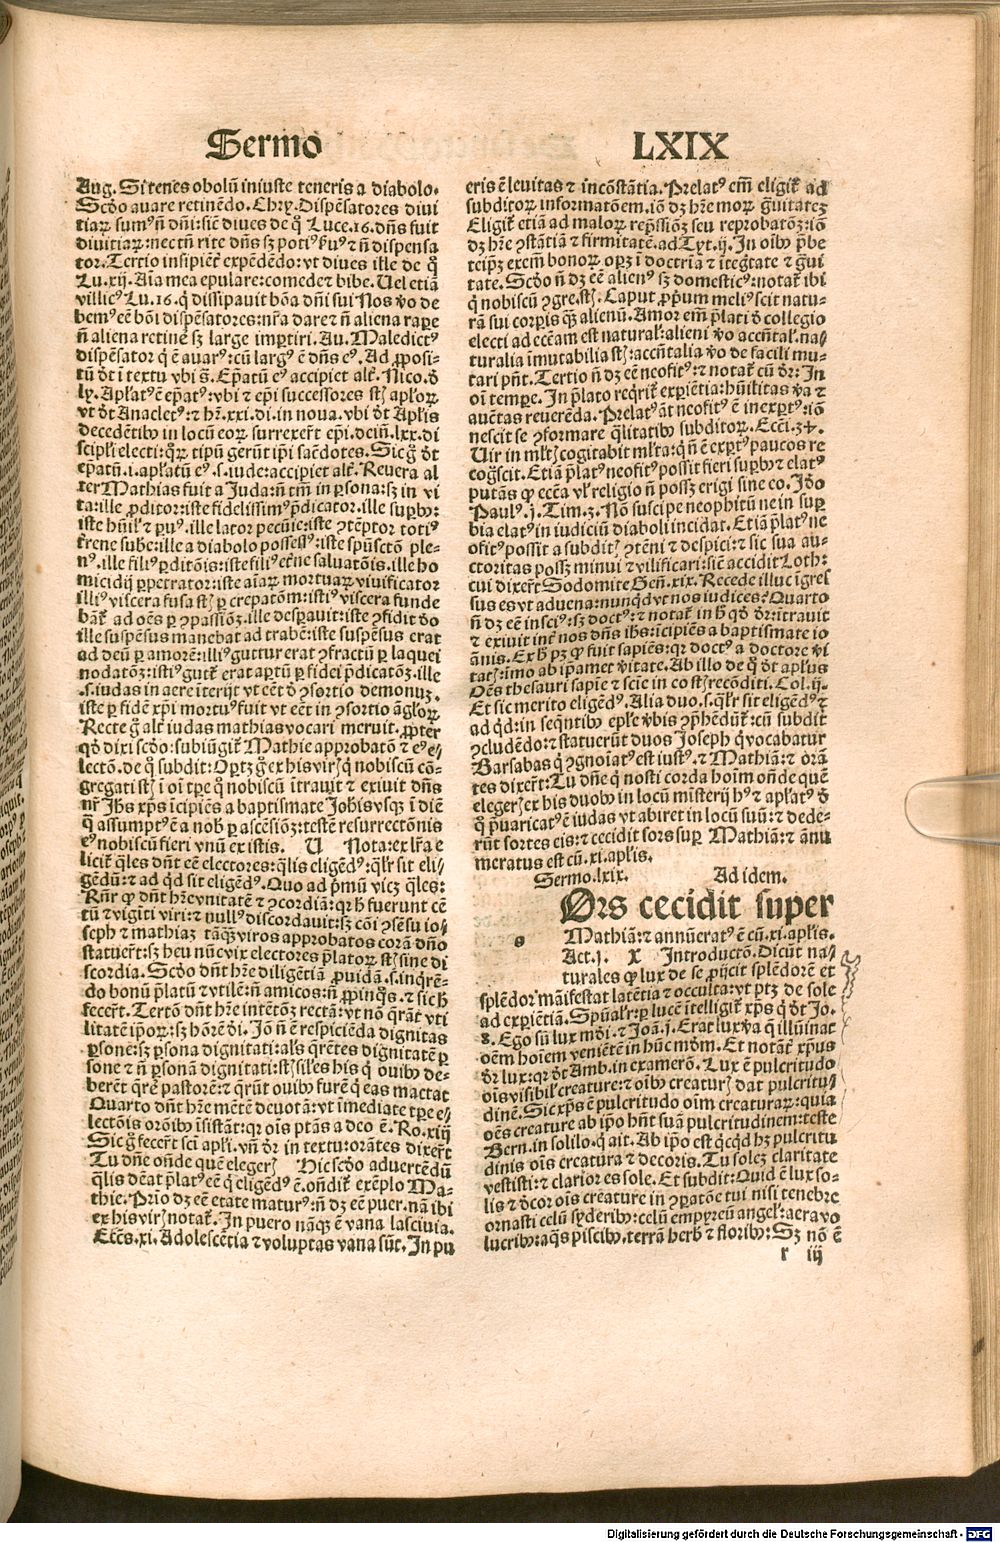 Sermo LXIX
Aug. Si tenes obolū iniuste teneris a diabolo.
Scđo auare retinēdo. Chry. Dispēsatores diui
tiaꝝ sumꝰ ñ dñi: sic̄ diues de q̊ Luce.16. dñs fuit
diuitiaꝝ: nec tñ rite dñs sꝫ potiꝰ ẜuꝰ ⁊ ñ dispensa
tor. Tertio insipiēt̄ expēdēdo: vt diues ille de q̊
Lu.xij. Aīa mea epulare: comede ⁊ bibe. Uel etiā
villicꝰ Lu.16. q̇ dissipauit bōa dñi sui Nos v̄o de
bemꝰ eē bōi dispēsatores: nr̄a dare ⁊ ñ aliena raꝑe
ñ aliena retinē sꝫ large imꝑtiri. Au. Maledictꝰ
dispēsator q̇ ē auarꝰ: cū largꝰ ē dñs eꝰ. Ad ꝓposi-
tū d̄t ī textu vbi s̄. Ep̄atū eꝰ accipiet alt̄. Nico. đ
ly. Ap̄latꝰ ē ep̄atꝰ: vbi ⁊ ep̄i successores st̄ apl̄oꝝ
vt d̄t Anacletꝰ: ⁊ hr̄.xxi.di. in noua. vbi d̄t Ap̄lis
decedētibꝰ in locū eoꝝ surrexer̄t ep̄i. deiñ.lxx.di
scipl̄i electi: q̊ꝝ tipū gerūt ip̄i saēdotes. Sic g̊ d̄t
ep̄atū.i. ap̄latū eꝰ.s. iude: accipiet alt̄. Reuera al
ter Mathias fuit a Juda: ñ tm̄ in ꝑsona: sꝫ in vi
ta: ille ꝓditor: iste fidelissimꝰ p̄dicator. ille suꝑbꝰ:
iste hūil̄ ⁊ ꝑuꝰ. ille lator pecūie: iste ꝯtēptor totiꝰ
t̄rene sube: ille a diabolo possessꝰ: iste spūsctō ple-
nꝰ. ille filiꝰ ꝑditōis: iste filiꝰ et̄ne saluatōis. ille ho
micidij ꝑpetrator: iste aīaꝝ mortuaꝝ viuificator
illiꝰ viscera fusa st̄ ꝑ crepatōm: istiꝰ viscera funde
bāt̄ ad oēs ꝑ ꝯpassiōꝫ. ille desꝑauit: iste ꝯfidit đo
ille suspēsus manebat ad trabē: iste suspēsus erat
ad deū ꝑ amorē: illiꝰ guttur erat ꝯfractū ꝑ laquei
nodatōꝫ: istiꝰ gutt̄ erat aꝑtū ꝑ fidei p̄dicatōꝫ. ille
.s. iudas in aere iterijt vt eēt đ ꝯsortio demonuꝫ.
iste ꝑ fidē xp̄i mortuꝰ fuit vt eēt in ꝯsortio āgl̄oꝝ.
Recte g̊ alt̄ iudas mathias vocari meruit. ꝓpter
qđ dixi scđo: subiūgit̄ Mathie approbatō ⁊ eꝰ e/
lectō. de q̊ subdit: Oꝑtꝫ g̊ ex his vir̄ q̇ nobiscū cō-
gregati st̄ ī oī tꝑe q̊ nobiscū ītrauit ⁊ exiuit dñs
nr̄ Jhs xp̄s īcipiēs a baptismate Johīs vsqꝫ ī diē
q̊ assumptꝰ ē a nob̄ ꝑ ascēsiōꝫ: testē resurrectōnis
eꝰ nobiscū fieri vnū ex istis. U Nota: ex lr̄a e
licit̄ q̄les dñt eē electores: q̄lis eligēdꝰ: q̄lr̄ sit eli-
gēdū: ⁊ ad qđ sit eligēdꝰ. Quo ad p̄mū vicꝫ q̄les:
Rñr̄ ꝙ dñt hr̄e vnitatē ⁊ ꝯcordiā: qꝛ h̄ fuerunt cē
tū ⁊ vigīti viri: ⁊ nullꝰ discordauit: sꝫ cōi ꝯsēsu io/
seph ⁊ mathiaꝫ tāqꝫ viros approbatos corā dño
statuer̄t: sꝫ heu nūc vix electores p̄latoꝝ st̄ sine di
scordia. Scđo dñt hr̄e diligētiā ꝓuidā.s. inq̇rē-
do bonū p̄latū ⁊ vtilē: ñ amicos: ñ ꝓpinq̊s. ⁊ sic h̄
fecer̄t. Tertō dñt hr̄e intētōꝫ rectā: vt nō q̄rāt vti
litatē ip̄oꝝ: sꝫ hōrē đi. Jō ñ ē respiciēda dignitas
ꝑsone: sꝫ ꝑsona dignitati: al̄s q̄rētes dignitatē ꝑ
sone ⁊ ñ ꝑsonā dignitati: st̄ siles his q̇ ouibꝰ de-
berēt q̄rē pastorē: ⁊ q̄rūt ouibꝰ furē q̇ eas mactat
Quarto dñt hr̄e mētē deuotā: vt īmediate tꝑe e/
lectōis orōibꝰ īsistāt: qꝛ oīs ptās a deo ē. Ro.xiij
Sic g̊ fecer̄t sci apl̄i. vñ đr in textu: orātes dixer̄t
Tu dñe oñde quē eleger̄ Hic scđo aduertēdū
q̄lis debeat p̄latꝰ eē q̇ eligēdꝰ ē. oñdit̄ exēplo Ma-
thie. Prio dꝫ eē etate maturꝰ: ñ dꝫ eē puer. nā ibi
ex his vir̄ notat̄. Jn puero nāqꝫ ē vana lasciuia.
Eccs.xi. Adolescētia ⁊ voluptas vana sūt. Jn pu
eris ē leuitas ⁊ incōstātia. Prelatꝰ em̄ eligit̄ ad
subditoꝝ informatōem. iō dꝫ hr̄e moꝝ g̊uitateꝫ
Eligit̄ etiā ad maloꝝ rep̄ssiōꝫ seu reprobatōꝫ: iō
dꝫ hr̄e ꝯstātiā ⁊ firmitatē. ad Tyt.ij. Jn oībꝰ p̄be
teip̄ꝫ exem̄ bonoꝝ oꝑꝫ ī doctrīa ⁊ īteg̊tate ⁊ g̊ui
tate. Scđo ñ dꝫ eē alienꝰ sꝫ domesticꝰ: notat̄ ibi
q̇ nobiscū ꝯgre.st̄. Caput ꝓpriū meliꝰ scit natu-
rā sui corꝑis qꝫ alienū. Amor em̄ p̄lati đ collegio
electi ad eccām est natural̄: alieni v̄o accn̄tal̄. na/
turalia īmutabilia st̄: accn̄talia v̄o de facili mu-
tari pn̄t. Tertio ñ dꝫ eē neofitꝰ: ⁊ notat̄ cū đr: Jn
oī tempe. Jn p̄lato req̇rit̄ exꝑiētia: hūilitas v̄a ⁊
auctās reuerēda. Prelatꝰ āt neofitꝰ ē inexꝑtꝰ: iō
nescit se ꝯformare q̄litatibꝰ subditoꝝ. Eccī.34.
Uir in ml̄t̄ cogitabit ml̄ta: q̇ ñ ē exꝑtꝰ paucos re
cog̊scit. Etiā p̄latꝰ neofitꝰ possit fieri suꝑbꝰ ⁊ elatꝰ
putās ꝙ ecc̄a vl̄ religio ñ possꝫ erigi sine eo. Jđo
Paulꝰ.j. Tim.3. Nō suscipe neophitū ne in suꝑ
bia elatꝰ in iudiciū diaboli incidat. Etiā p̄latꝰ ne
ofitꝰ possit a subdit̄ ꝯtēni ⁊ despici: ⁊ sic sua au-
ctoritas possꝫ minui ⁊ vilificari: sic̄ accidit Loth:
cui dixer̄t Sodomite Geñ.xix. Recede illuc īgres
sus es vt aduena: nunqđ vt nos iudices? Quarto
ñ dꝫ eē insciꝰ: sꝫ doctꝰ: ⁊ notat̄ in h̄ qđ đr: ītrauit
⁊ exiuit int̄ nos dñs ihs: īcipiēs a baptismate io
ānis. Ex h̄ pꝫ ꝙ fuit sapiēs: qꝛ doctꝰ a doctore vi
tat̄: īmo ab ip̄amet v̄itate. Ab illo de q̊ d̄t ap̄lus
Oēs thesauri sapiē ⁊ sciē in eo st̄ recōditi. Col.ij.
Et sic merito eligēdꝰ. Alia duo.s. q̄lr̄ sit eligēdꝰ ⁊
ad qđ: in seq̄ntibꝰ ep̄le v̄bis ꝯp̄hēdūt̄: cū subdit
ꝯcludēdo: ⁊ statuerūt duos Joseph q̇ vocabatur
Barsabas q̇ ꝯgnoīatꝰ est iustꝰ. ⁊ Mathiā: ⁊ orā
tes dixer̄t: Tu dñe q̇ nosti corda hoīm oñde quē
eleger̄ ex his duobꝰ in locū mīsterij hꝰ ⁊ ap̄latꝰ đ
q̊ p̄uaricatꝰ ē iudas vt abiret in locū suū: ⁊ dede-
rūt sortes eis: ⁊ cecidit sors suꝑ Mathiā: ⁊ ānu
meratus est cū.xi. ap̄lis.
Sermo.lxix. Ad idem.
s Ors cecidit super
Mathiā: ⁊ annūeratꝰ ē cū.xi. ap̄lis.
Act.j. X Introductō. Dicūt na/
turales ꝙ lux de se ꝓijcit splēdorē et
splēdor manifestat latētia ⁊ occulta: vt ptꝫ de sole
ad exꝑiētiā. Spūal̄r: ꝑ lucē ītelligit̄ xp̄s q̇ d̄t Jo.
8. Ego sū lux mōi. ⁊ Joā.j. Erat lux v̄a q̄ illuīnat
oēm hoīem veniētē in hūc mōm. Et notāt̄ xp̄us
đr lux: qꝛ d̄t Amb. in examerō. Lux ē pulcritudo
oīs visibil̄ creature: ⁊ oībꝰ creatur̄ dat pulcritu/
dinē. Sic xp̄s ē pulcritudo oīm creaturaꝝ: quia
oēs creature ab ip̄o hn̄t suā pulcritudinem: teste
Bern. in solilo. q̇ ait. Ab ip̄o est q̇cqđ hꝫ pulcritu
dinis oīs creatura ⁊ decoris. Tu soleꝫ claritate
vestisti: ⁊ clarior es sole. Et subdit: Quid ē lux so/
lis ⁊ đcor oīs creature in ꝯparatōe tui nisi tenebre
ornasti celū syderibꝰ: celū empyreū angel̄: aera vo
lucribꝰ: aq̄s piscibꝰ. terrā herb̄ ⁊ floribꝰ: Sꝫ nō ē
r iij
Digitalisierung gefördert durch die Deutsche Forschungsgemeinschaft - DFG